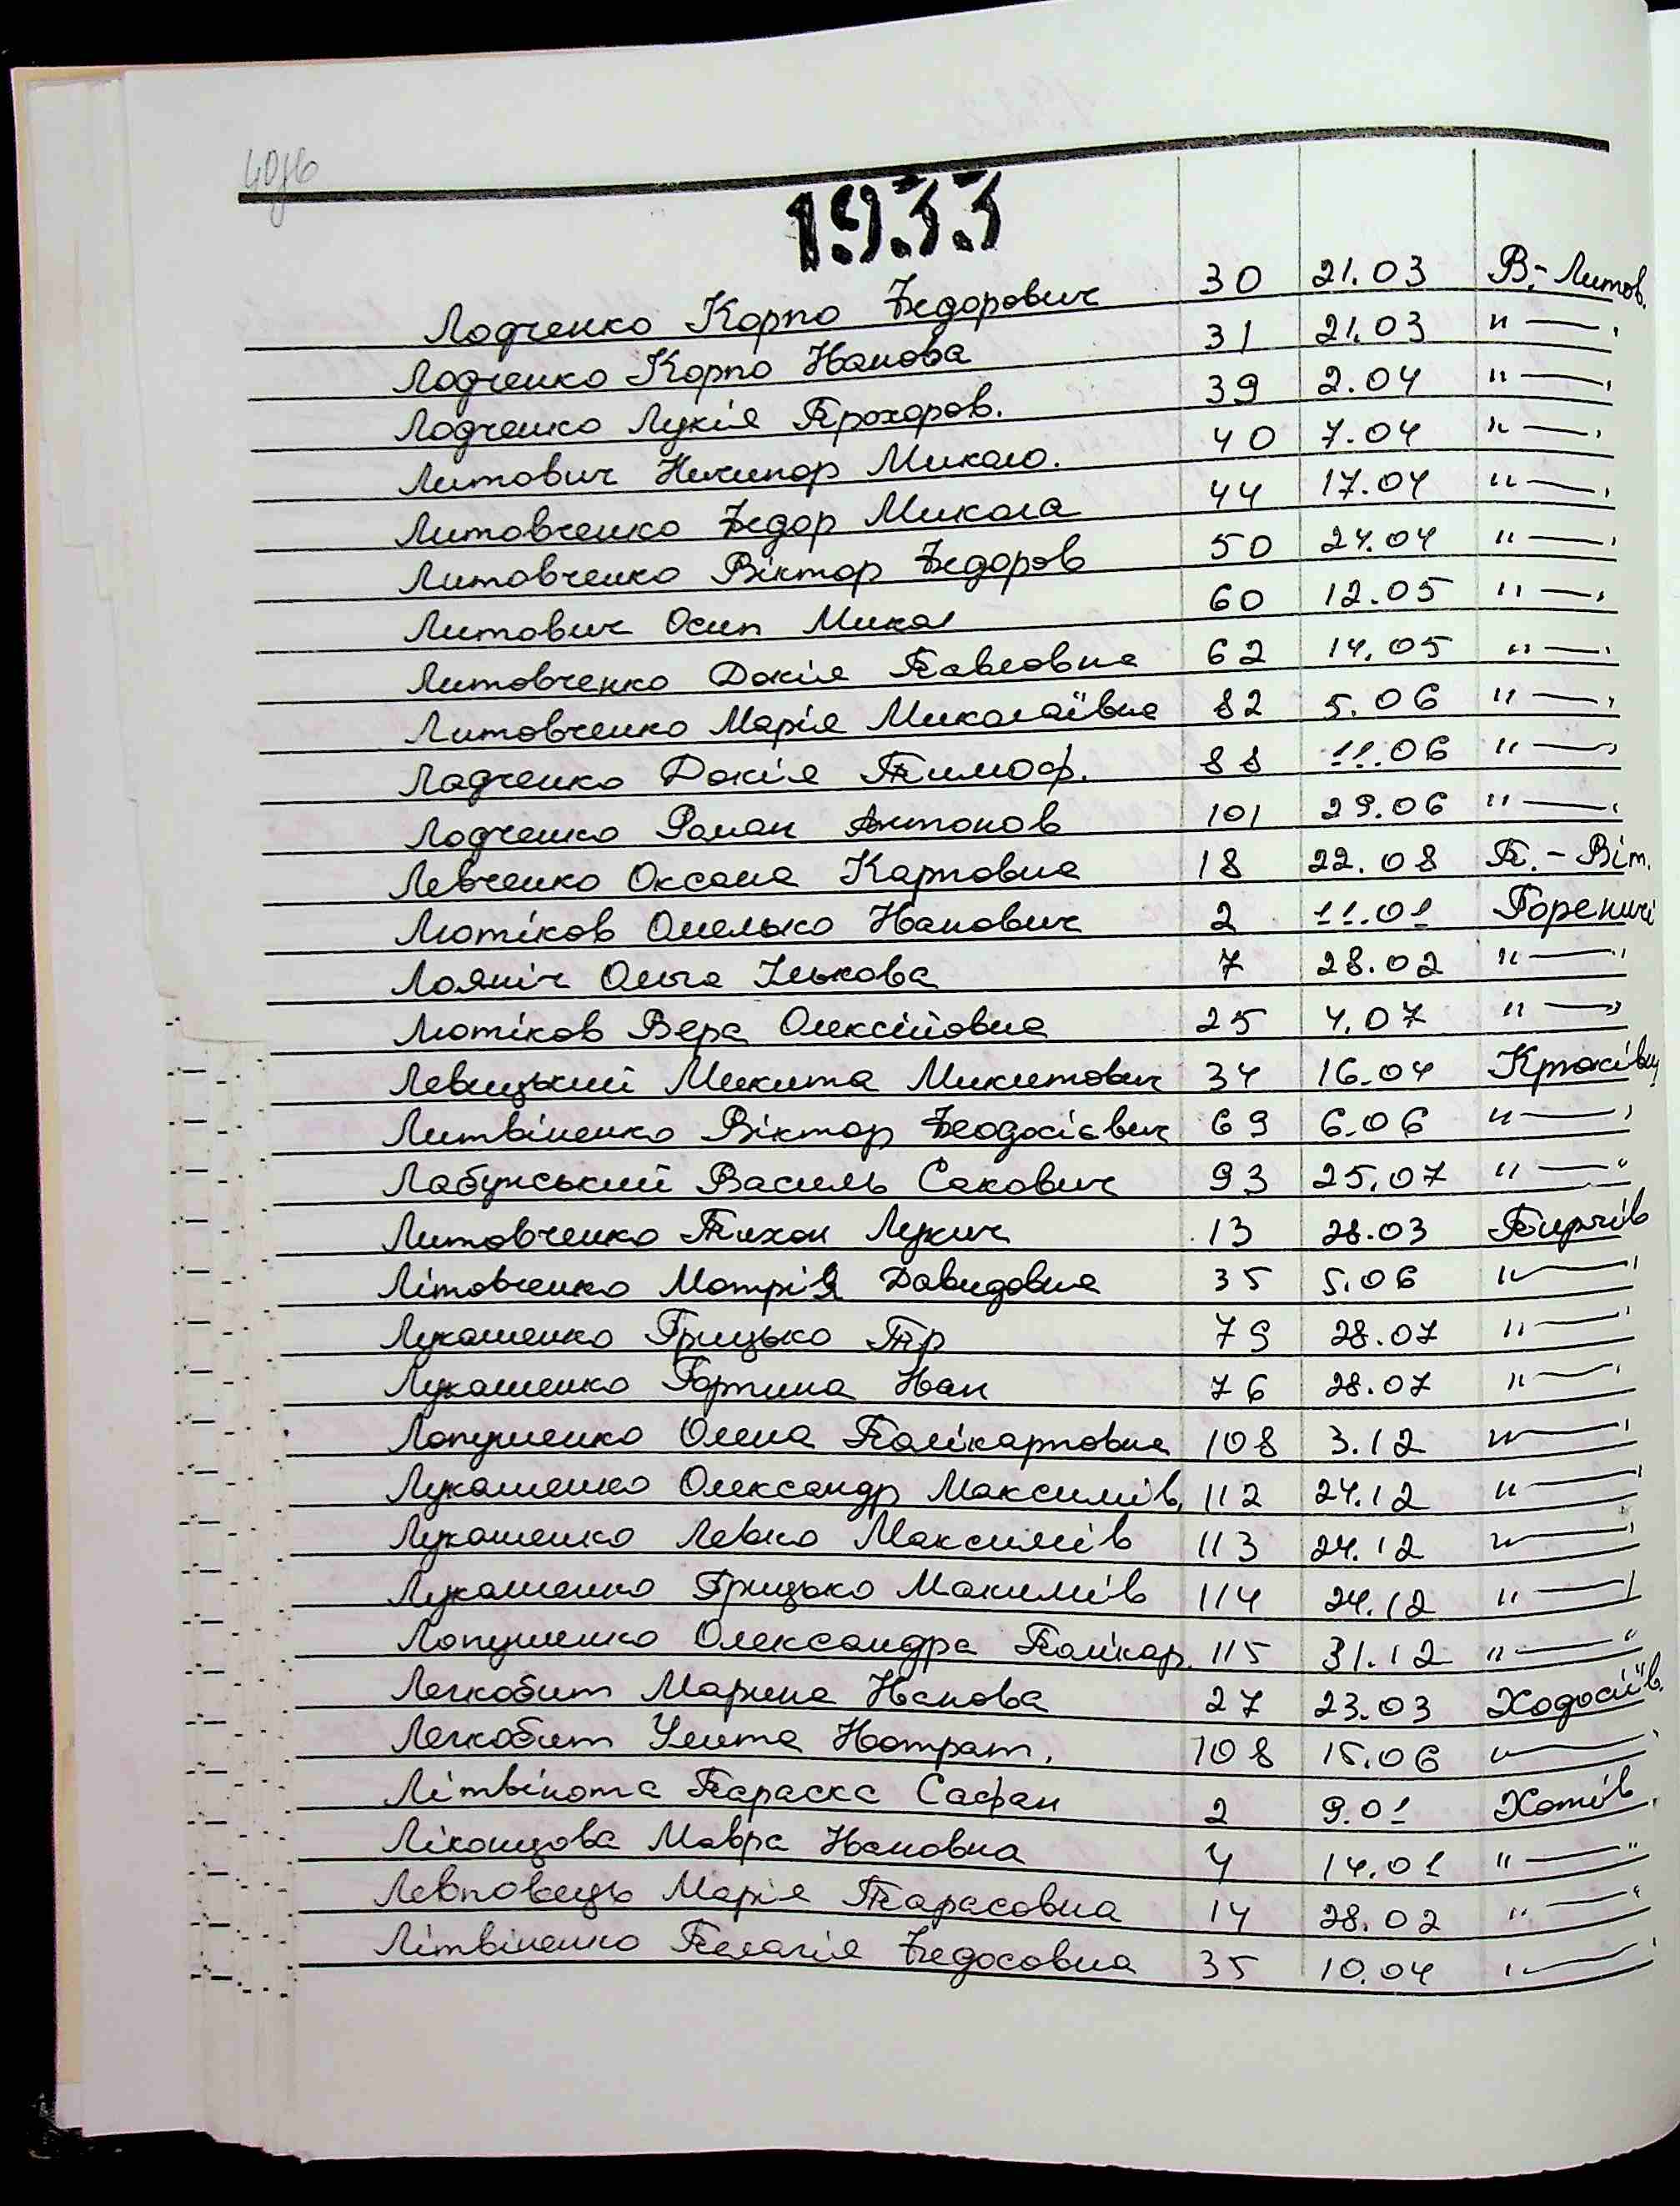 1933
Лодченко Корпо Федорович 30 21.03 В.-Литов.
Лодченко Корпо Іванова 31 21.03 "—"
Лодченко Лукія Прохоров. 39 2.04 "—"
Литович Ничипор Микого. 40 7.04 "—"
Литовченко Федор Микола 44 17.04 "—"
Литовченко Віктор Федоров 50 24.04 "—"
Литович Осип Микол 60 12.05 "—"
Литовченко Докія Павловна 62 14.05 "—"
Литовченко Марія Миколаївна 82 5.06 "—"
Ладченко Докія Тимоф. 88 11.06 "—"
Лодченко Роман Антонов 101 29.06 "—"
Левченко Оксана Карповна 18 22.08 П.-Віт.
Лютіков Омелько Іванович 2 11.01 Гореничі
Лояніч Ольга Ількова 7 28.02 "—"
Лютіков Вера Олексійовна 25 4.07 "—"
Левицький Микита Микитович 34 16.04
Литвіненко Віктор Феодосієвич 69 6.06 "—"
Лабунський Василь Сакович 93 25.07 "—"
Литовченко Тихон Лукич 13 28.03 Пирогів
Літовченко Мотрія Давидовна 35 5.06 "—"
Лукашенко Грицько Тр 79 28.07 "—"
Лукашенко Горпина Іван 76 28.07 "—"
Лопушенко Олена Полікарповна 108 3.12 "—"
Лукашенко Олександр Максимів. 112 24.12 "—"
Лукашенко Левко Максимів 113 24.12 "—"
Лукашенко Грицько Макимів 114 24.12 "—"
Лопушенко Олександра Полікар. 115 31.12 "—"
Легкобит Марина Іванова 27 23.03 Ходосіїв.
Легкобит Улита 108 15.06 "—"
Літвінота Параска Сафан 2 9.01 Хотів.
Ліконцова Мавра Івановна 4 14.01 "—"
Левповець Марія Тарасовна 14 28.02 "—"
Літвіненко Пелагія Федосовна 35 10.04 "—"